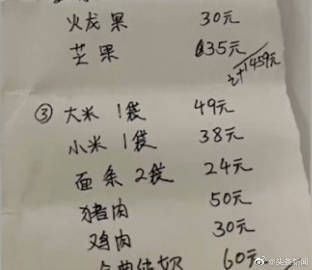 火龙果 30元
芒果 35元
计1459元
③大米 1袋 49元
小米 1袋 38元
面条 2袋 24元
猪肉 50元
鸡肉 30元
纯奶 60元
@头条新闻